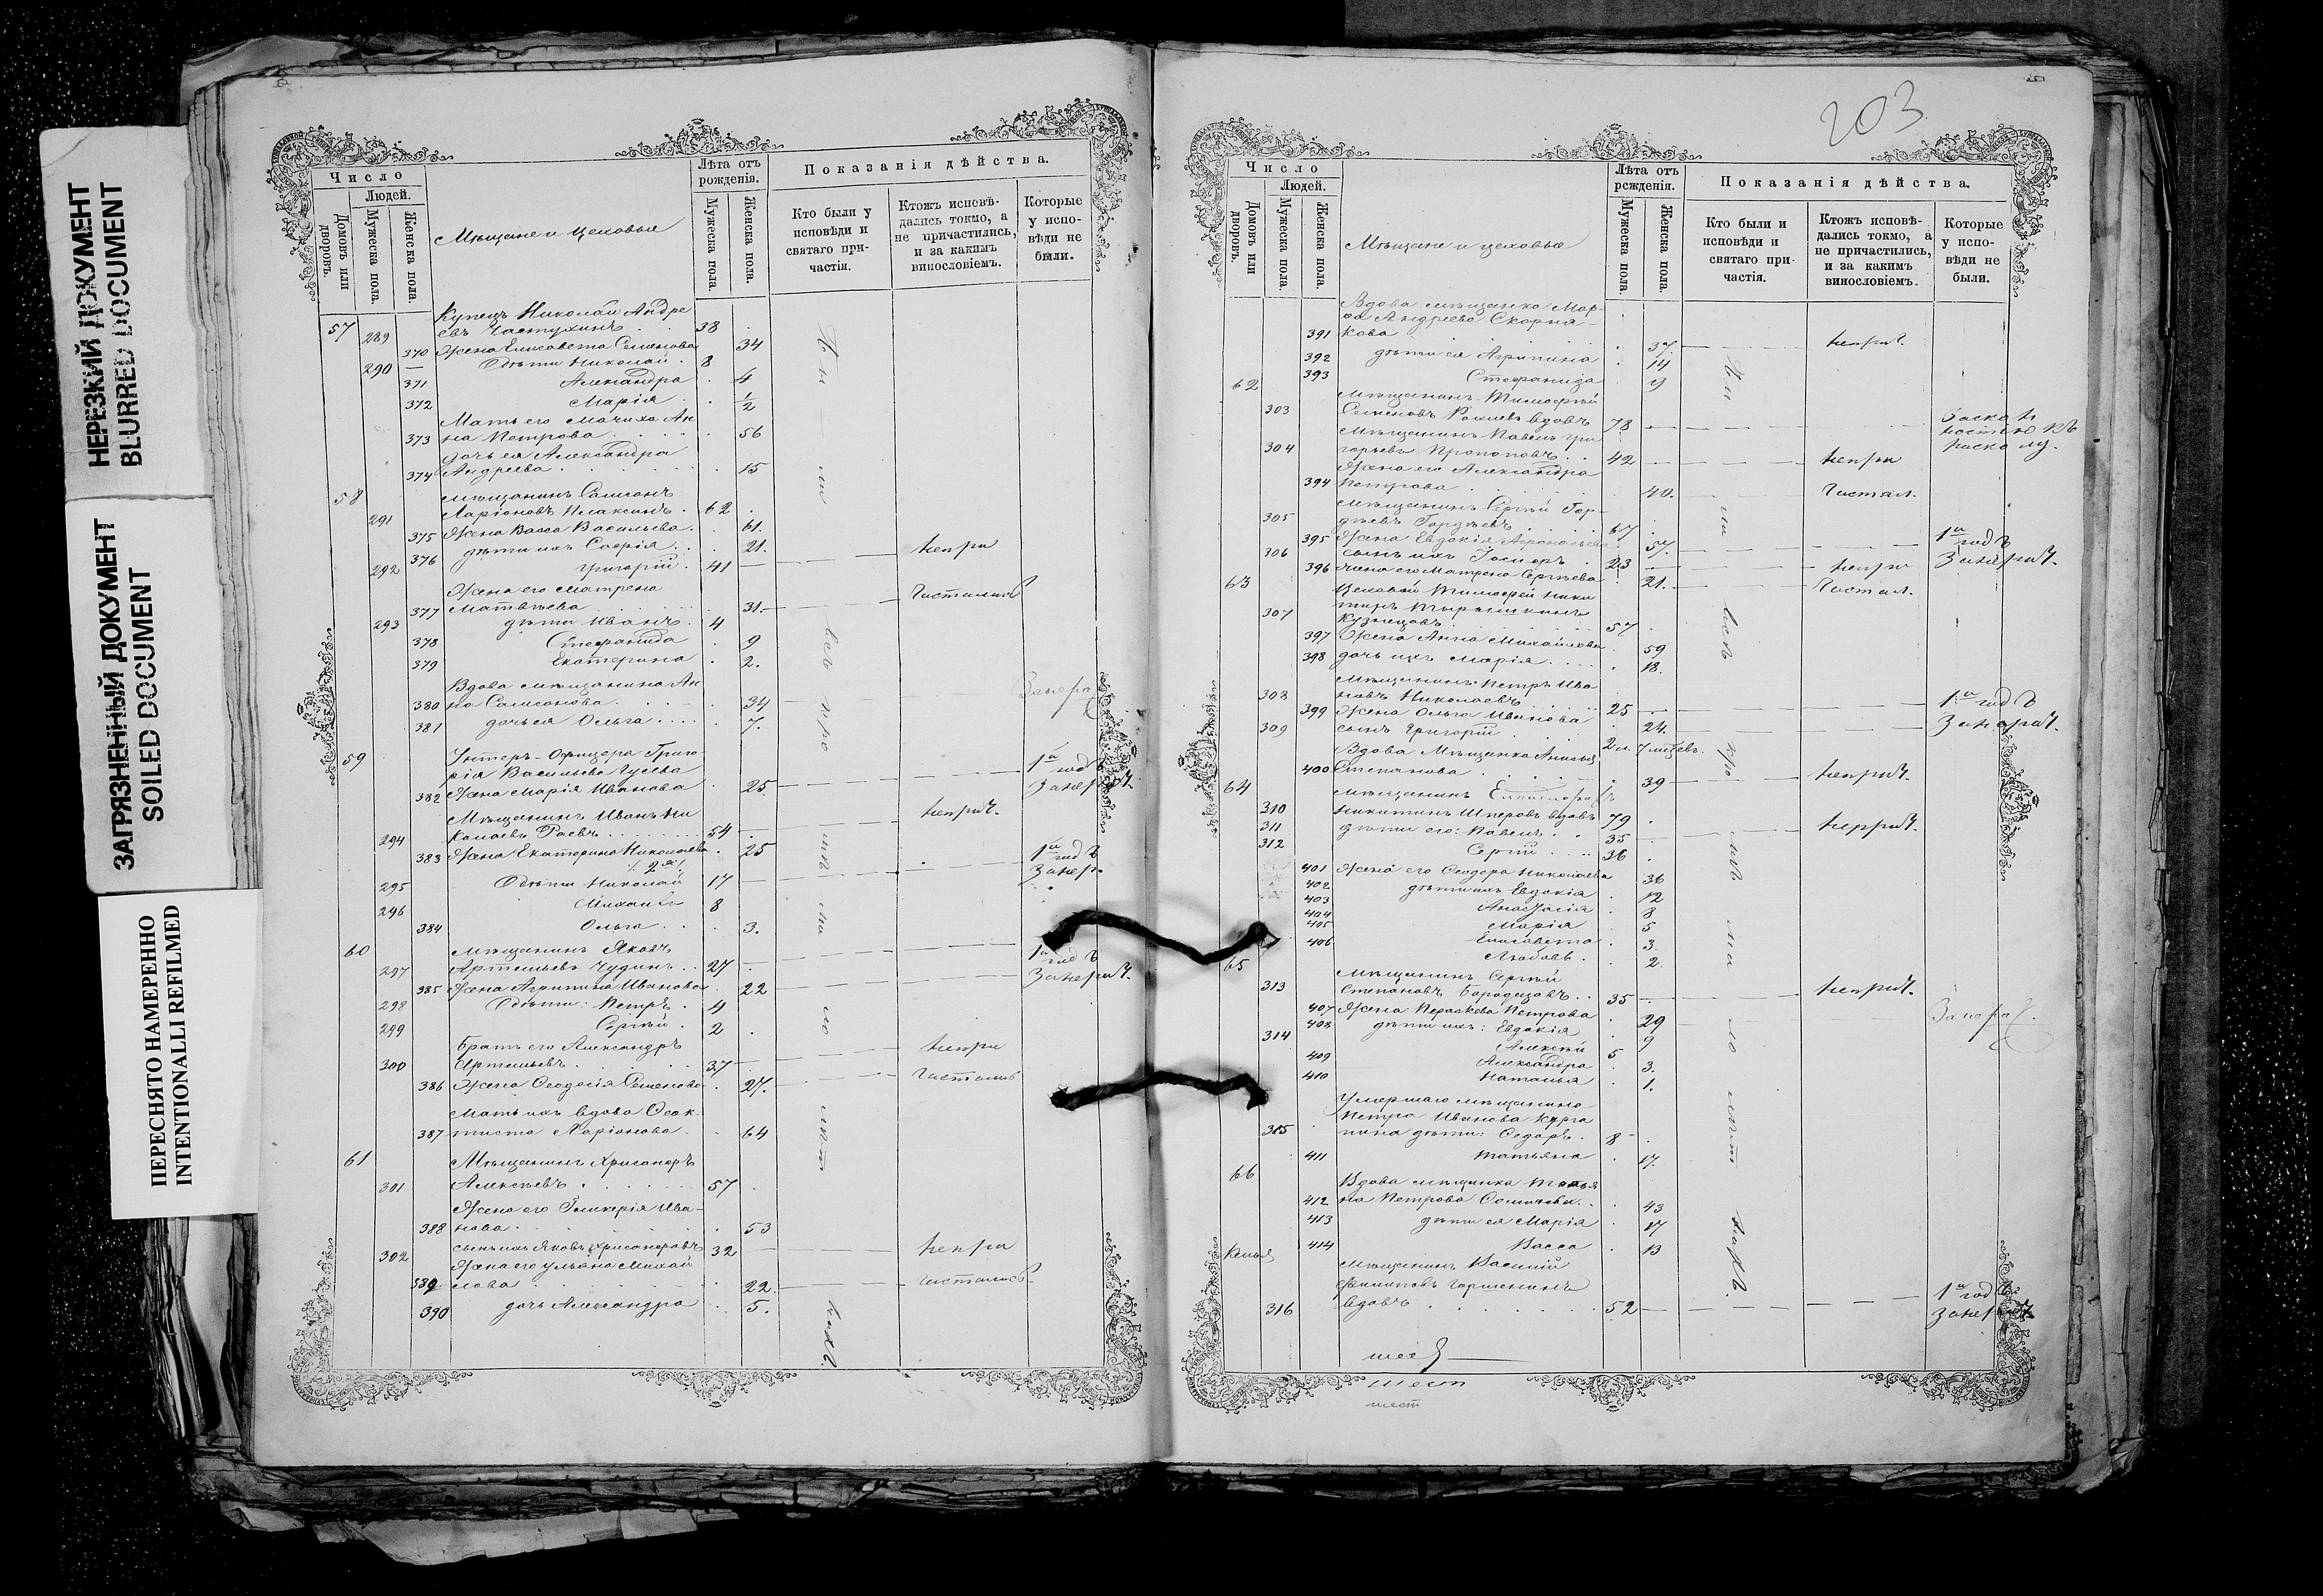 НЕРЕЗКИЙ ДОКУМЕНТ
BLURRED DOCUMENT
ЗАГРЯЗНЕННЫЙ ДОКУМЕНТ
SOILED DOCUMENT
ПЕРЕСНЯТО НАМЕРЕННО
INTENTIONALLI REFILMED
Число
Людей.
Домовъ или дворовъ.
Мужеска пола.
Женска пола.
Мѣщане и цеховые
Лѣта отъ рожденія.
Мужеска пола.
Женска пола.
Показанія дѣйства.
Кто были у исповѣди и святаго причастія.
Ктожъ исповѣдались токмо, а не причастились, и за какимъ винословіемъ.
Которые у исповѣди не были.
Купецъ Николай Андре
57 289 евъ Частухинъ 38
370 Жена Елисавета Семенова 34
290 Ѻдѣти Николай 8
371 Александра 4
372 Марія 1/2
Мать его мачиха Ан
373 на Петрова 56
дочь ея Александра
374 Андреева 15
58 Мѣщанинъ Самсонъ
291 Ларіоновъ Плаксинъ 62
375 Жена Васса Васильева 61.
376 дѣти ихъ Софія 21.
292 Григорій 41 непри
Жена его Матрена
377 Матвѣева 31. частились
293 дѣти Иванъ 4
378 Стефанида 9
379 Екатерина 2.
Вдова мѣщанина Ан
380 на Самсонова 34
381 дочь ея Ольга 7.
59 Унтеръ-Офицера Григо-
рія Васильева Гусева 1й годъ
382 Жена Марія Иванова 25
Мѣщанинъ Иванъ Ни
294 колаевъ Раевъ 54 неприч.
383 Жена Екатерина Николаева 25 1й годъ
295 Николай 17
296 Михаилъ 8
384 Ольга 3.
60 Мѣщанинъ Яковъ
297 Артемьевъ Чудинъ 27 1й годъ
385 Жена Агрипина Иванова 22
298 дѣти: Петръ 4
299 Сергѣй 2
Братъ его Александръ
300 Артемьевъ 37 непри
386 Жена Ѳеодосія Семенова 27. частились
Мать ихъ вдова Ѳеок
387 тиста Ларіонова 64
61 Мѣщанинъ Хрисанфъ
301 Алексѣевъ 57
Жена его Гликерія Ива-
388 нова 53
302 сынъ ихъ Яковъ Хрисанфовъ 32 непри
Жена его Ульяна Михай
389 лова 22. частились
390 дочь Александра 5.
203
Число
Людей.
Домовъ или дворовъ.
Мужеска пола.
Женска пола.
Мѣщане и цеховые
Лѣта отъ рожденія.
Мужеска пола.
Женска пола.
Показанія дѣйства.
Кто были и исповѣди и святаго причастія.
Ктожъ исповѣдались токмо, а не причастились, и за какимъ винословіемъ.
Которые у исповѣди не были.
Вдова мѣщанка Мар-
ѳа Андреева Скорня-
391 кова 37. неприч.
392 дѣти ея Агрипина 14
393 Стефанида 9
62 Мѣщанинъ Тимофей
303 Семеновъ вдовъ 78
Мѣщанинъ Павелъ Гри
304 горьевъ Прокоповъ 42 непри
Жена его Александра
394 Петрова 40. частил.
Мѣщанинъ Сергѣй Гор-
305 дѣевъ Гордѣевъ 67
395 Жена Евдокія 57. 1й годъ
306 сынъ ихъ Іосифъ 23 непри
396 Жена его Матрена Сергѣева 21. частил.
63 Цеховой Тимофей Ники
307 Кузнецовъ 57
397 Жена Анна Михайлова 59
398 дочь ихъ Марія 18.
Мѣщанинъ Петръ Ива
308 новъ Николаевъ 25 1й годъ
399 Жена Ольга Иванова 24.
309 сынъ Григорій
Вдова Мѣщанка Анисья
400 Степанова 39 неприч.
64 Мѣщанинъ
310 Никитинъ вдовъ 79
311 дѣти его: Павелъ 35 неприч.
312 Сергѣй 36
401 Жена его Ѳеодора Николаева 36
402 дѣти ихъ Евдокія 12
403 Анастасія 8
404 Марія 5
405 Елисавета 3
406 Любовь 2
65 Мѣщанинъ Сергѣй
313 Степановъ 35 неприч.
407 Жена Параскева Петрова 29
408 дѣти ихъ: Евдокія 9
314 Алексѣй 5
409 Александра 3.
410 Наталья 1.
Умершаго мѣщанина
Петра Иванова
315 дѣти: Ѳедоръ 8
411 Татьяна 17.
66 Вдова мѣщанка Татья
412 на Петрова 43
413 дѣти ея Марія 17
414 Васса 13
Келья Мѣщанинъ Василій
Филиповъ Горшенинъ
316 вдовъ 52 1й годъ